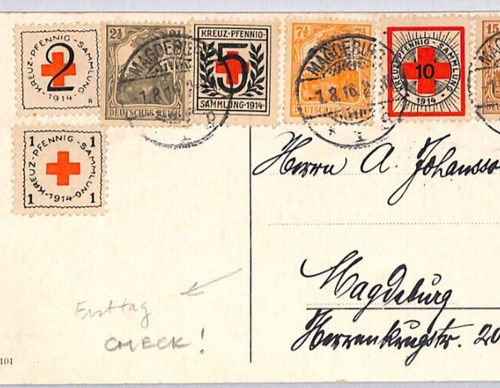 KREUZ-PFENNIG-SAMMLUNG
2
1914
2½
DEUTSCHES REICH
KREUZ-PFENNIG
5
SAMMLUNG-1914
7½
DEUTSCHES REICH
KREUZPFENNIG-SAMMLUNG
10
1914
15
MAGDEBURG
1.8.16
MAGDEBURG
1.8.16
1 1
KREUZ-PFENNIG-SAMMLUNG-1914
1 1
Herrn A. Johansso
Magdeburg
Herrenkrugstr. 20
Ersttag
CHECK!
101